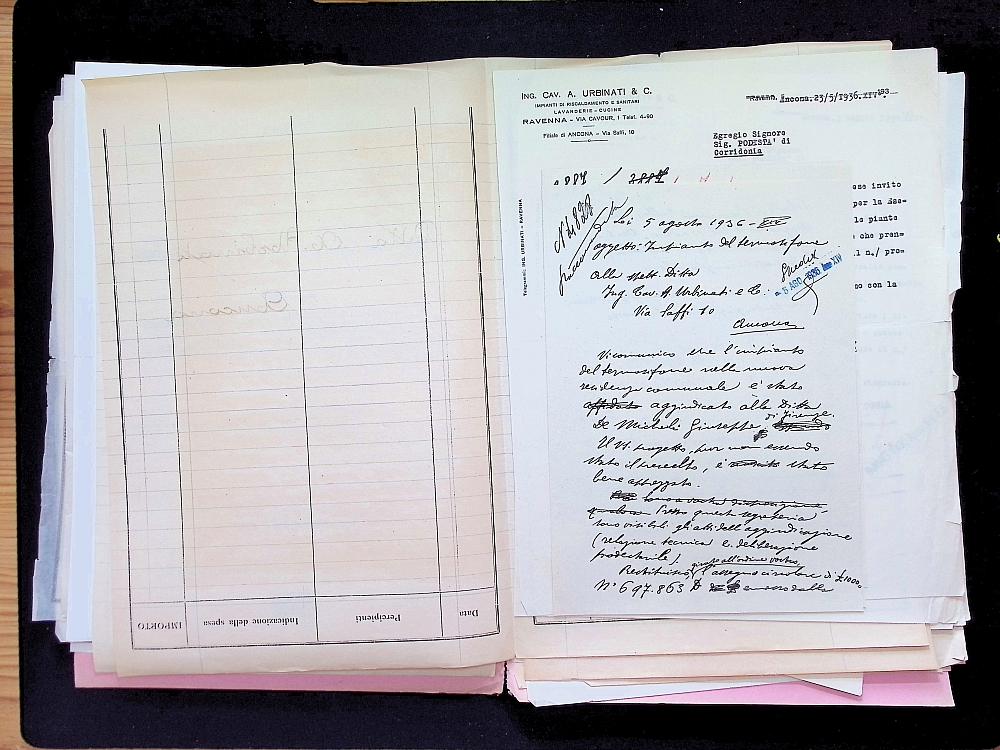 ING. CAV. A. URBINATI & C.
IMPIANTI DI RISCALDAMENTO E SANITARI
LAVANDERIE - CUCINE
RAVENNA - VIA CAVOUR, 1 Telef. 4-90
Filiale di ANCONA - Via Saffi, 10
Ancona, 23/5/1936.XIV°.
Egregio Signore
Sig. PODESTA' di
Corridonia
Telegrammi: ING. URBINATI - RAVENNA
N. 4828
Lì 5 agosto 1936 - XIV
oggetto: Impianto del termosifone
Spedita
5 AGO 1936 Anno XIV
Alla spett. Ditta
Ing. Cav. A. Urbinati e C.
Via Saffi 10
Ancona
Vi comunico che l'impianto
del termosifone nella nuova
residenza comunale è stato
affidato aggiudicato alla Ditta
De Micheli Giuseppe di Firenze.
Il Vs. progetto, pur non essendo
stato il prescelto, è stato
bene apprezzato.
sono a vostra disposizione
qualora Presso questa segreteria
sono visibili gli atti dell'aggiudicazione
(relazione tecnica e deliberazione
podestarile).
Restituisco l'assegno circolare di £ 1000.
N° 697.863 emesso dalla
ese invito
per la
le piante
che pren-
l n./ pro-
o con la
Data
Percipienti
Indicazione della spesa
IMPORTO